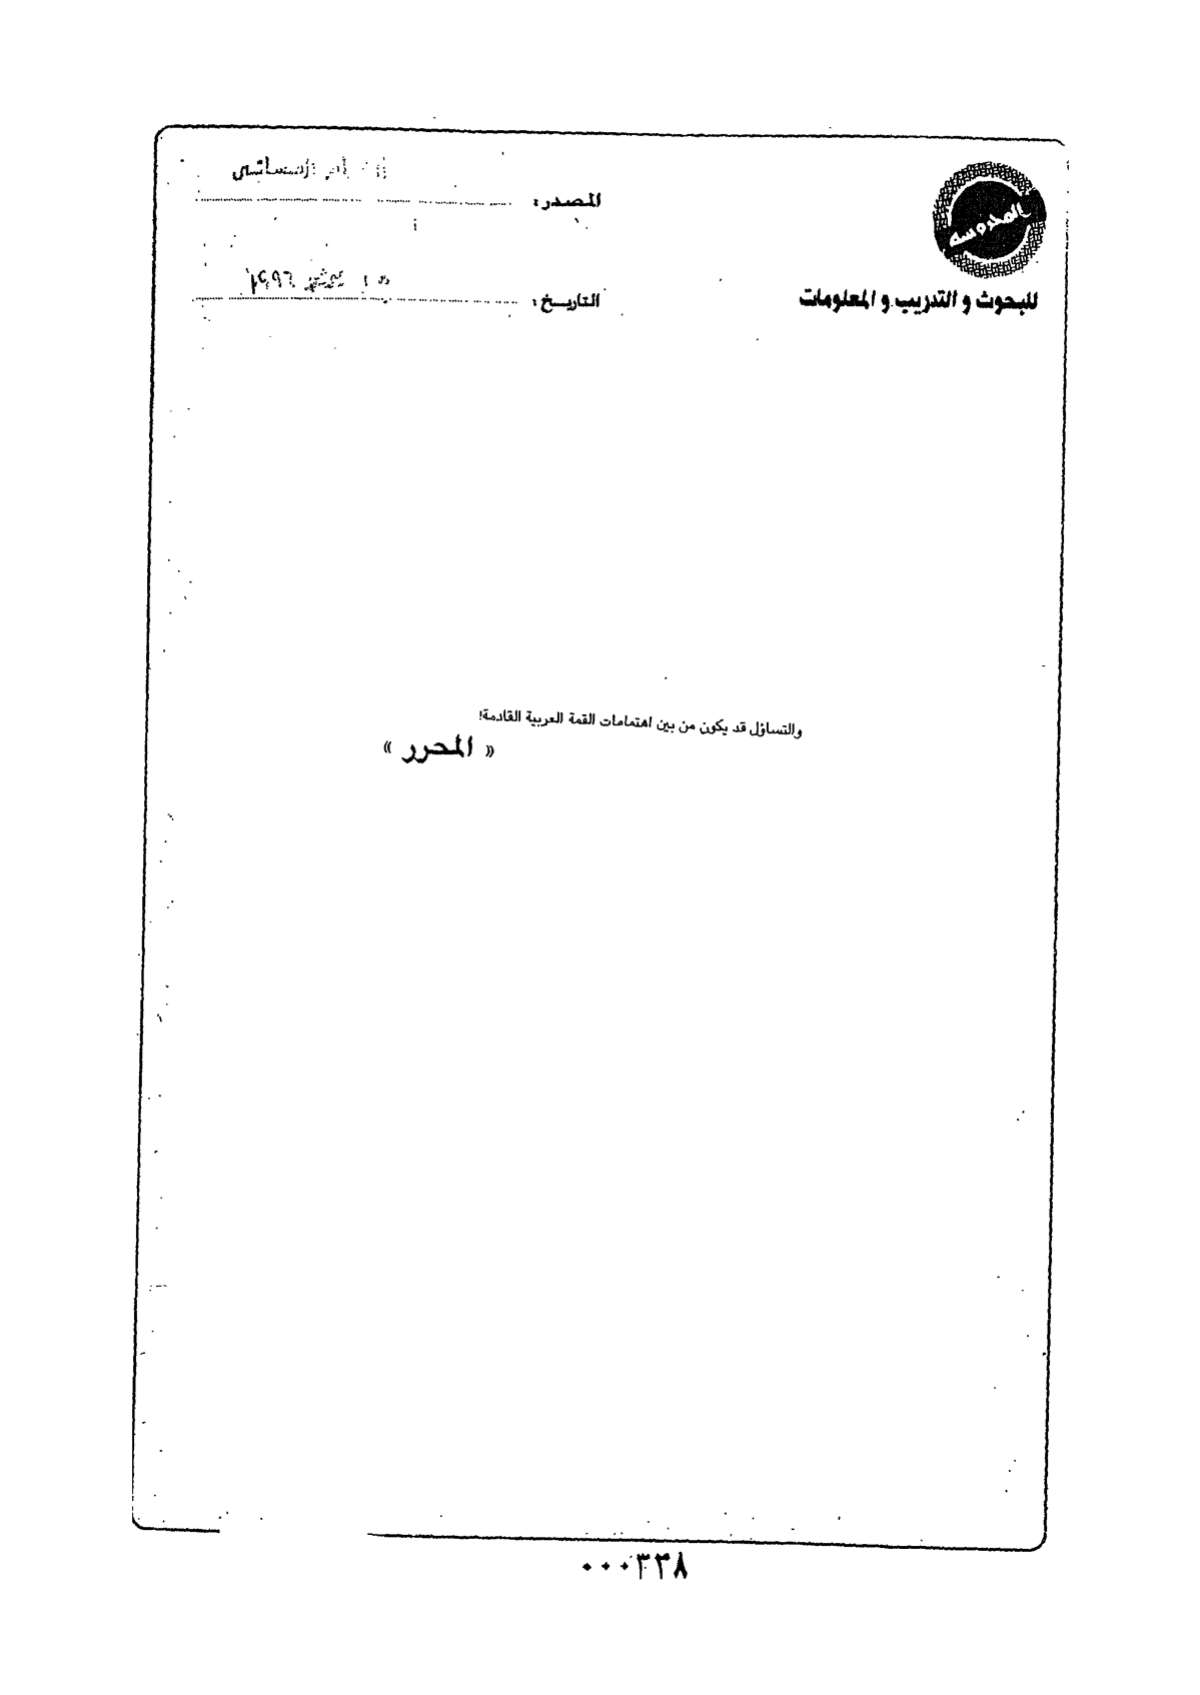 المحروسة
للبحوث و التدريب و المعلومات
المصدر :
التاريخ : ١٩٩٦
والتساؤل قد يكون من بين اهتمامات القمة العربية القادمة!
« المحرر »